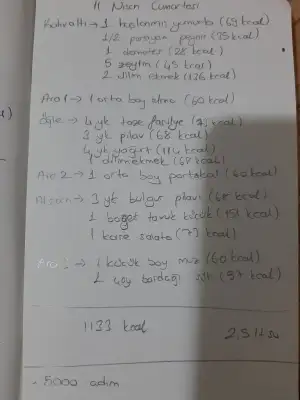 11 Nisan Cumartesi
Kahvaltı → 1 haşlanmış yumurta (69 kcal)
1/2 porsiyon peynir (75 kcal)
1 domates (28 kcal)
5 zeytin (45 kcal)
2 dilim ekmek (136 kcal)
Ara 1 → 1 orta boy elma (60 kcal)
Öğle → 4 yk taze fasulye
3 yk pilav (68 kcal)
4 yk yoğurt (114 kcal)
1 dilim ekmek (68 kcal)
Ara 2 → 1 orta boy portakal (60 kcal)
Akşam → 3 yk bulgur pilavı (68 kcal)
1 baget tavuk küçük (151 kcal)
1 kase salata (73 kcal)
Ara 3 → 1 küçük boy muz (60 kcal)
1 çay bardağı süt (57 kcal)
1133 kcal 2,5 lt su
- 5000 adım